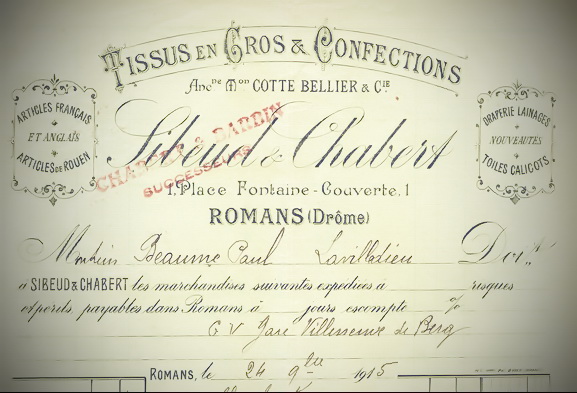 TISSUS EN GROS & CONFECTIONS
Ancne Mon COTTE BELLIER & CIE
ARTICLES FRANÇAIS
ET ANGLAIS
ARTICLES DE ROUEN
DRAPERIE LAINAGES
NOUVEAUTES
TOILES CALICOTS
Sibeud & Chabert
CHABERT & BARBIN
SUCCESSEURS
1, Place Fontaine-Couverte, 1
ROMANS (Drôme)
Monsieur Beaume Paul Lavilledieu Doit
à SIBEUD & CHABERT les marchandises suivantes expédiées à risques
et périls, payables dans Romans à jours escompte %
G V Gare Villeneuve de Berg
ROMANS, le 24 9bre 1915